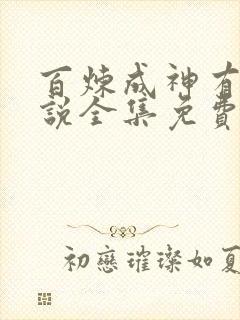 百煉成神有
說全集免費
初戀璀璨如夏